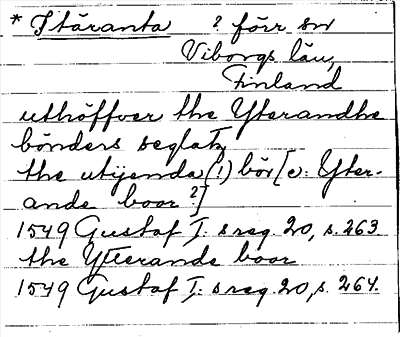 * Itäranta ? förr sn
Viborgs län,
Finland
uthöffver the Yterandhe
bönders seglatz
the utijenda (!) bör [ɔ: Yter-
ande boor ?]
1549 Gustaf I: s reg. 20, s. 263.
the Ytterande boor
1549 Gustaf I: s reg. 20, s. 264.